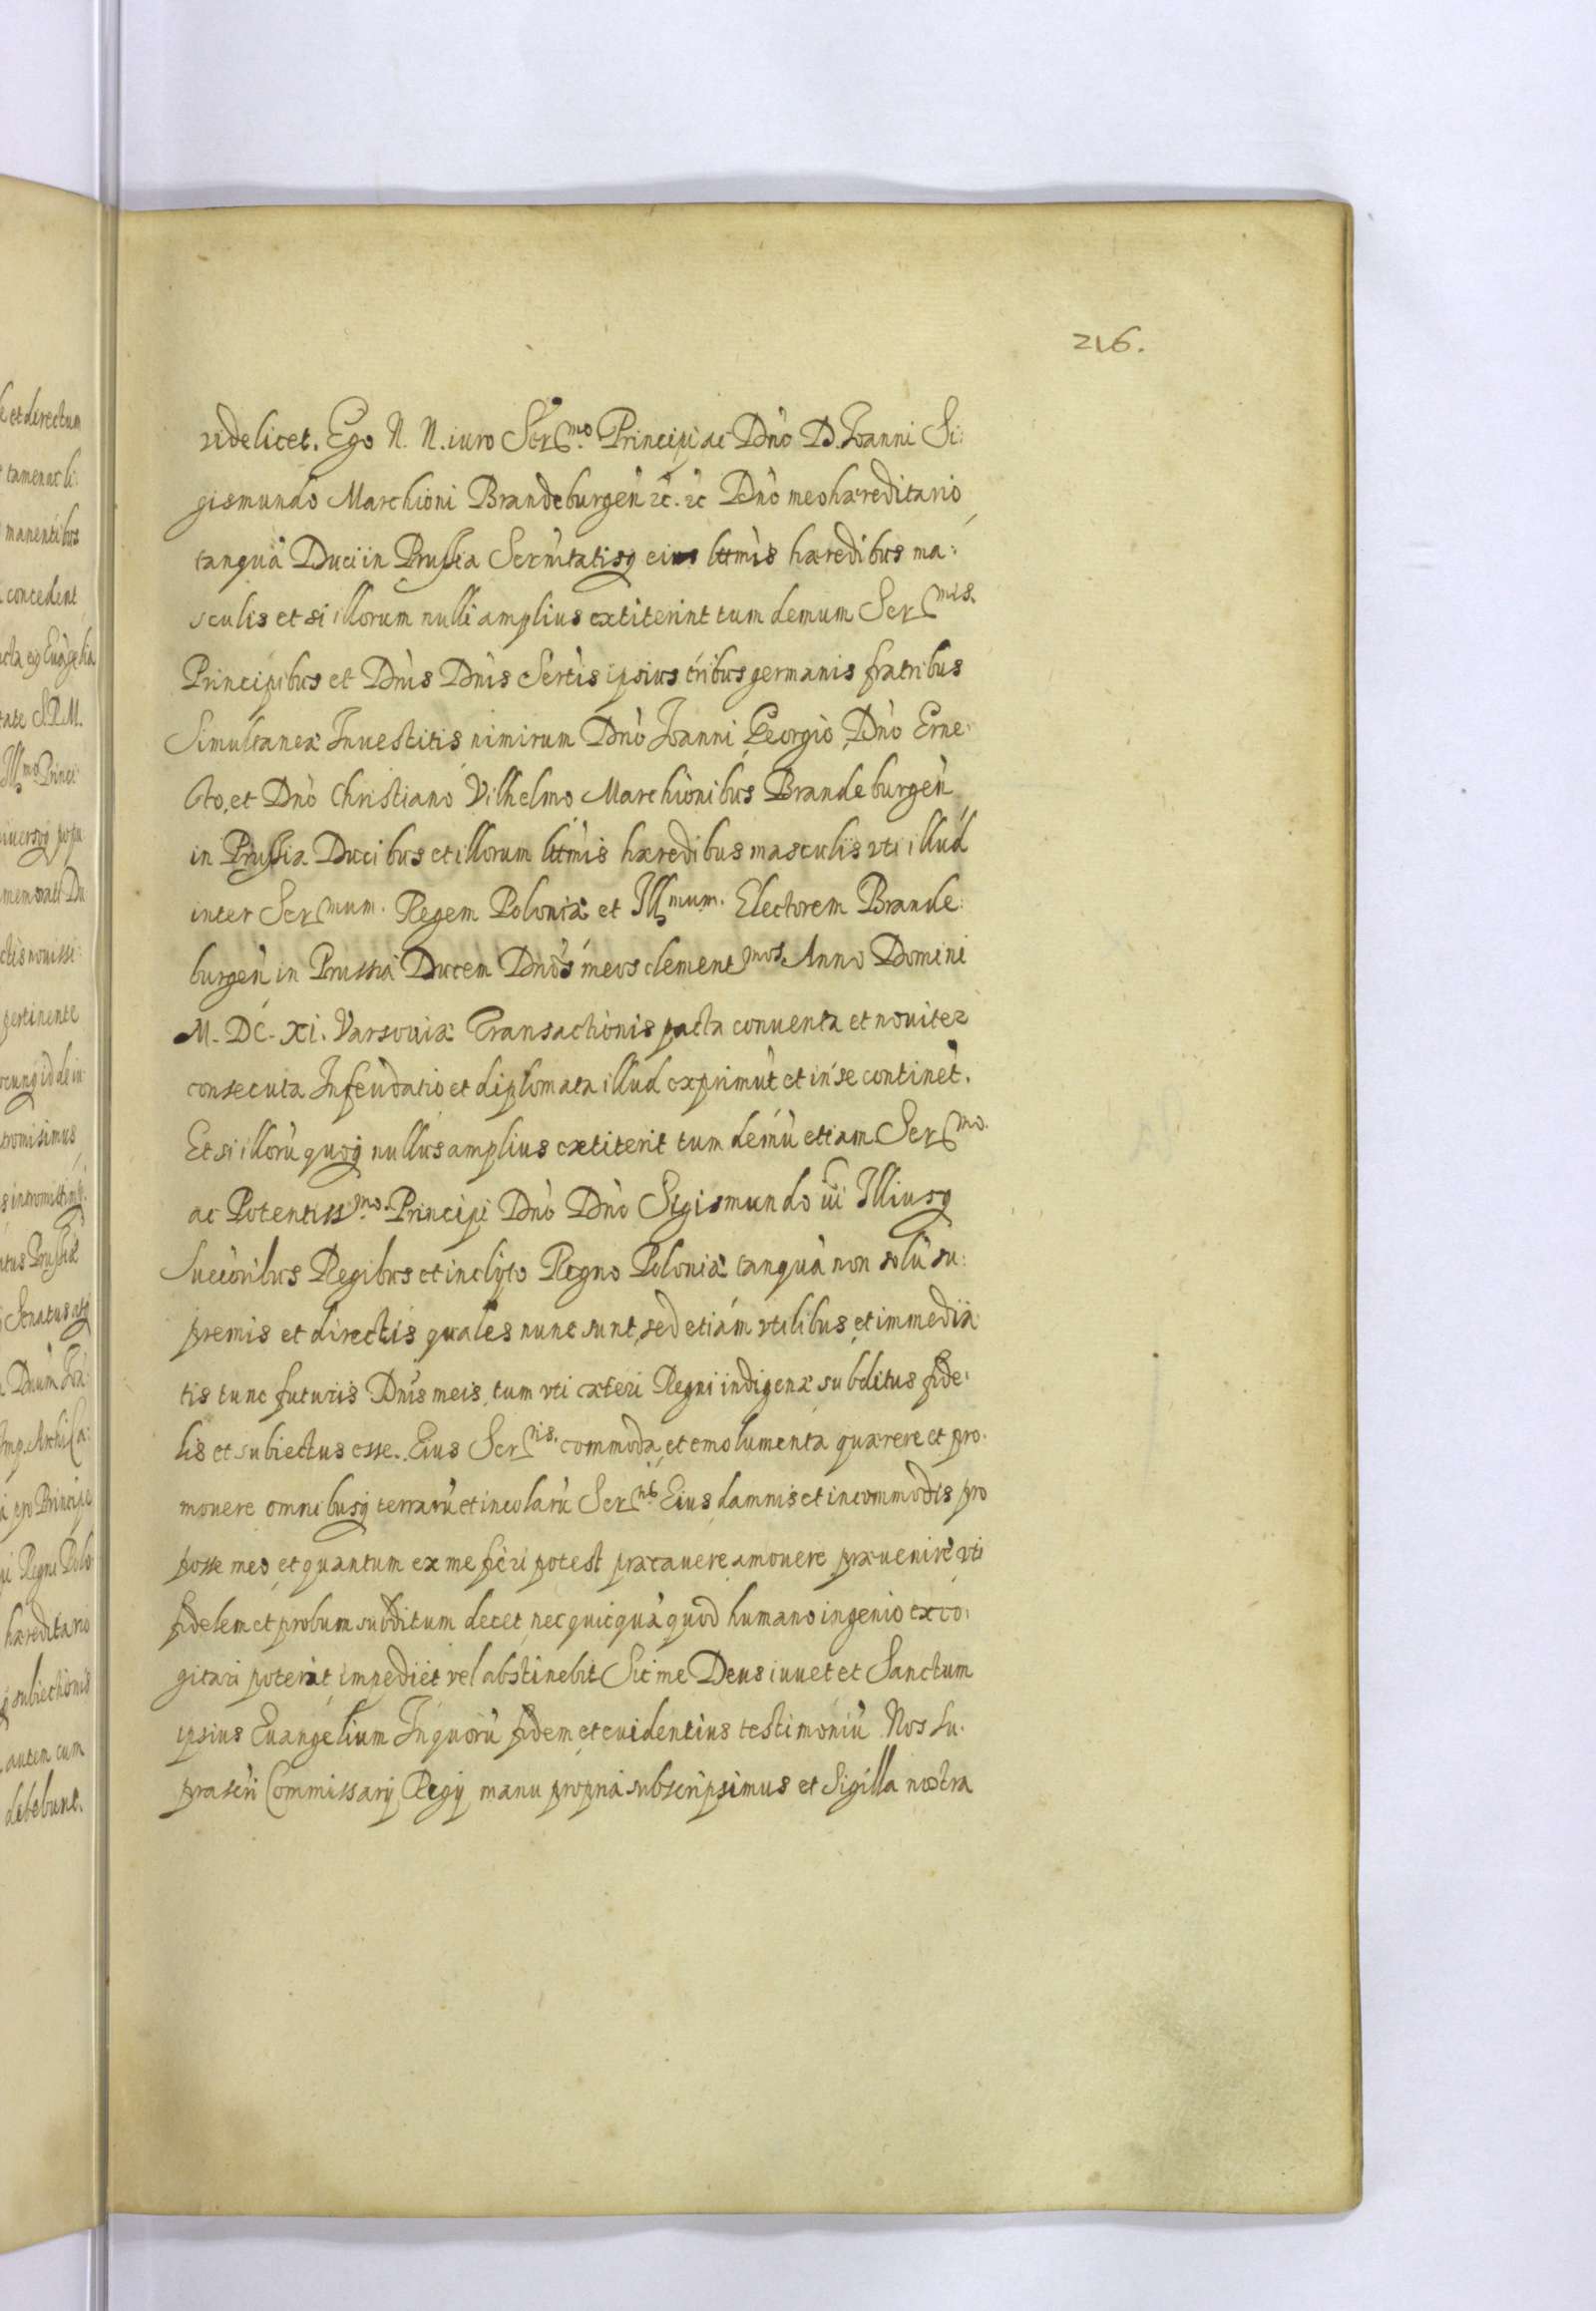 216.
videlicet. Ego N. N. iuro Ser.mo Principi ac Dño D. Joanni Si:
gismundo Marchioni Brandeburgeñ &c. &c Dño meo hæreditario
tanquã Duci in Prussia Serñitatisq eius lttmis hæredibus ma:
sculis et si illorum nulli amplius extiterint tum demum Ser.mis.
Principibus et Dñis Dñis Sertis ipsius tribus germanis fratribus
Simultaneæ Inuestitis nimirum Dño Joanni Georgio Dño Erne:
sto, et Dño Christiano Vilhelmo Marchionibus Brandeburgeñ
in Prussia Ducibus et illorum lttmis hæredibus masculis vti illud
inter Ser.mum. Regem Poloniæ et Ill.mum. Electorem Brande:
burgeñ in Prussia Ducem Dños meos clement.mos. Anno Domini
M. DC. XI. Varsouiæ Transactionis pacta conuenta et nouiter
consecuta Infeudatio et diplomata illud exprimũt et in se continẽt.
Et si illorũ quoq nullus amplius extiterit tum demũ etiam Ser.mo.
ac Potentiss.mo. Principi Dño Dño Sigismundo iii Illiusq
Succoribus Regibus et inclyto Regno Poloniæ tanquã non solũ su:
premis et directis quales nunc sunt, sed etiam vtilibus et immedia:
tis tunc futuris Dñis meis, tum vti cæteri Regni indigenæ subditus fide:
lis et subiectus esse. Eius Ser.tis. commoda et emolumenta quærere et pro:
mouere omnibusq terrarũ et incolarũ Ser.tis Eius damnis et incommodis pro
posse meo et quantum ex me fieri potest præcauere amouere præuenire vti
fidelem et probum subditum decet nec quicquã quod humano ingenio exco:
gitari poterit impediet vel abstinebit Sic me Deus iuuet et Sanctum
ipsius Euangelium In quorũ fidem et euidentius testimoniũ Nos su:
prascri Commissarij Regij manu propria subscripsimus et Sigilla nostra